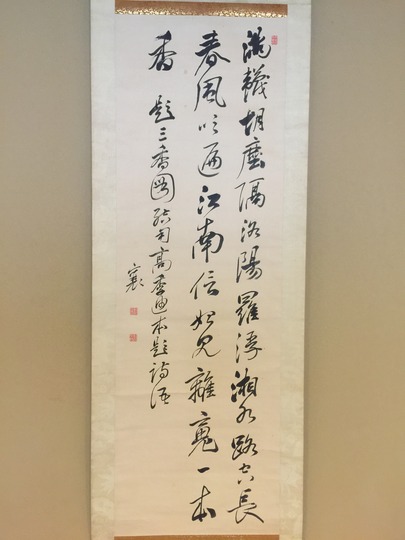 韈胡塵隔洛陽羅浮湘水路空長
春風吹遍江南信始見離一本
香 題三香圖結句高季迪本題詩語
襄